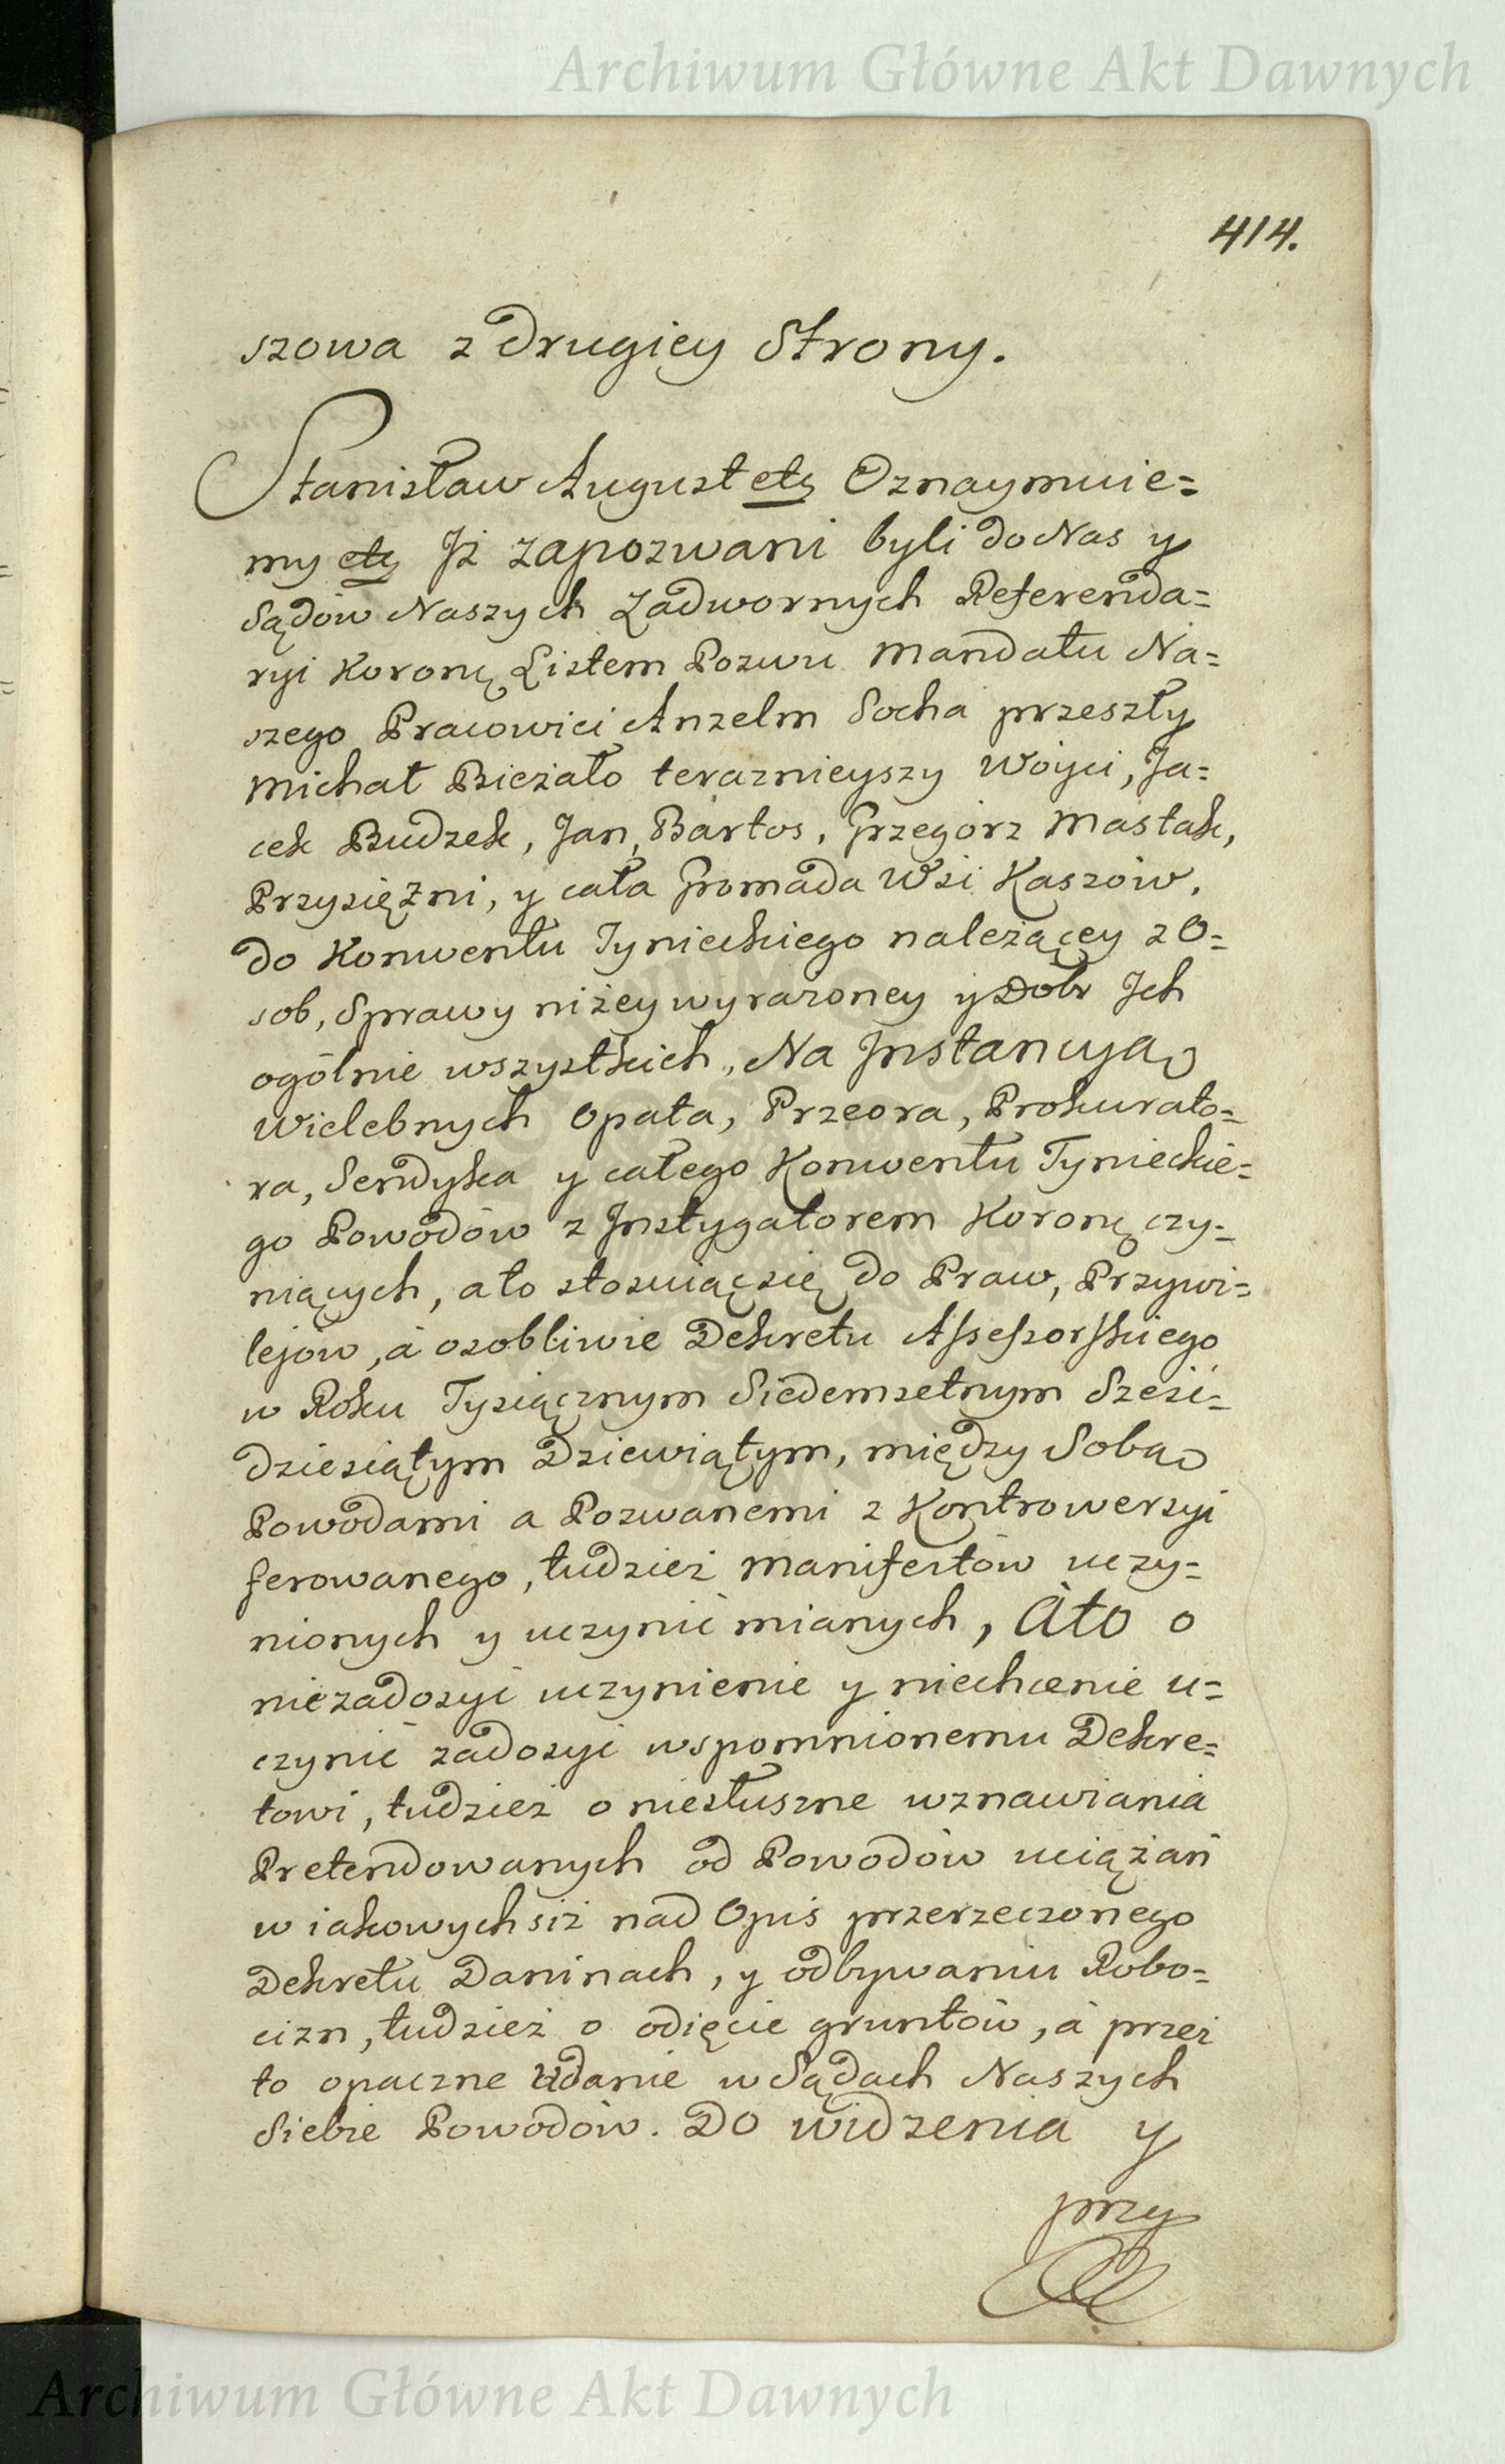 Archiwum Główne Akt Dawnych
414.
szowa z drugiey Strony.
Stanisław August etc Oznaymuie=
my etc Jż zapozwani byli do Nas y
Sądów Naszych Zadwornych Referenda=
ryi Koronę Listem Pozwu Mandatu Na=
szego Pracowici Anzelm Socha przeszły
Michał Bieżało teraznieyszy Wóyci, Ja=
cek Budzek, Jan, Bartos, Grzegórz Mastak,
Przysiężni, y cała Gromada Wsi Kaszów,
do Konwentu Tynieckiego należącey z O=
sob, Sprawy niżey wyrażoney y Dobr Jch
ogólnie wszystkich, Na Jnstancyą
Wielebnych Opata, Przeora, Prokurato=
ra, Sendyka y całego Konwentu Tynieckie=
go Powodów z Jnstygatorem Koronę czy=
niących, a to stosuiąc się do Praw, Przywi=
lejow, á osobliwie Dekretu Assessorskiego
w Roku Tysiącznym Siedemsetnym Sześć=
dziesiątym Dziewiątym, między Sobą
Powodami a Pozwanemi z Kontrowersyi
ferowanego, tudzież Manifestów uczy=
nionych y uczynić mianych, A to o
niezadosyć uczynienie y niechcenie u=
czynić zadosyć wspomnionemu Dekre=
towi, tudzież o niesłuszne wznawiania
Pretendowanych od Powodów uciążań
w iakowychsiż nad Opis przerzeczonego
Dekretu Daninach, y odbywaniu Robo=
cizn, tudzież o odięcie gruntów, á przez
to opaczne udanie w Sądach Naszych
Siebie Powodów. Do widzenia y
przy
Archiwum Główne Akt Dawnych